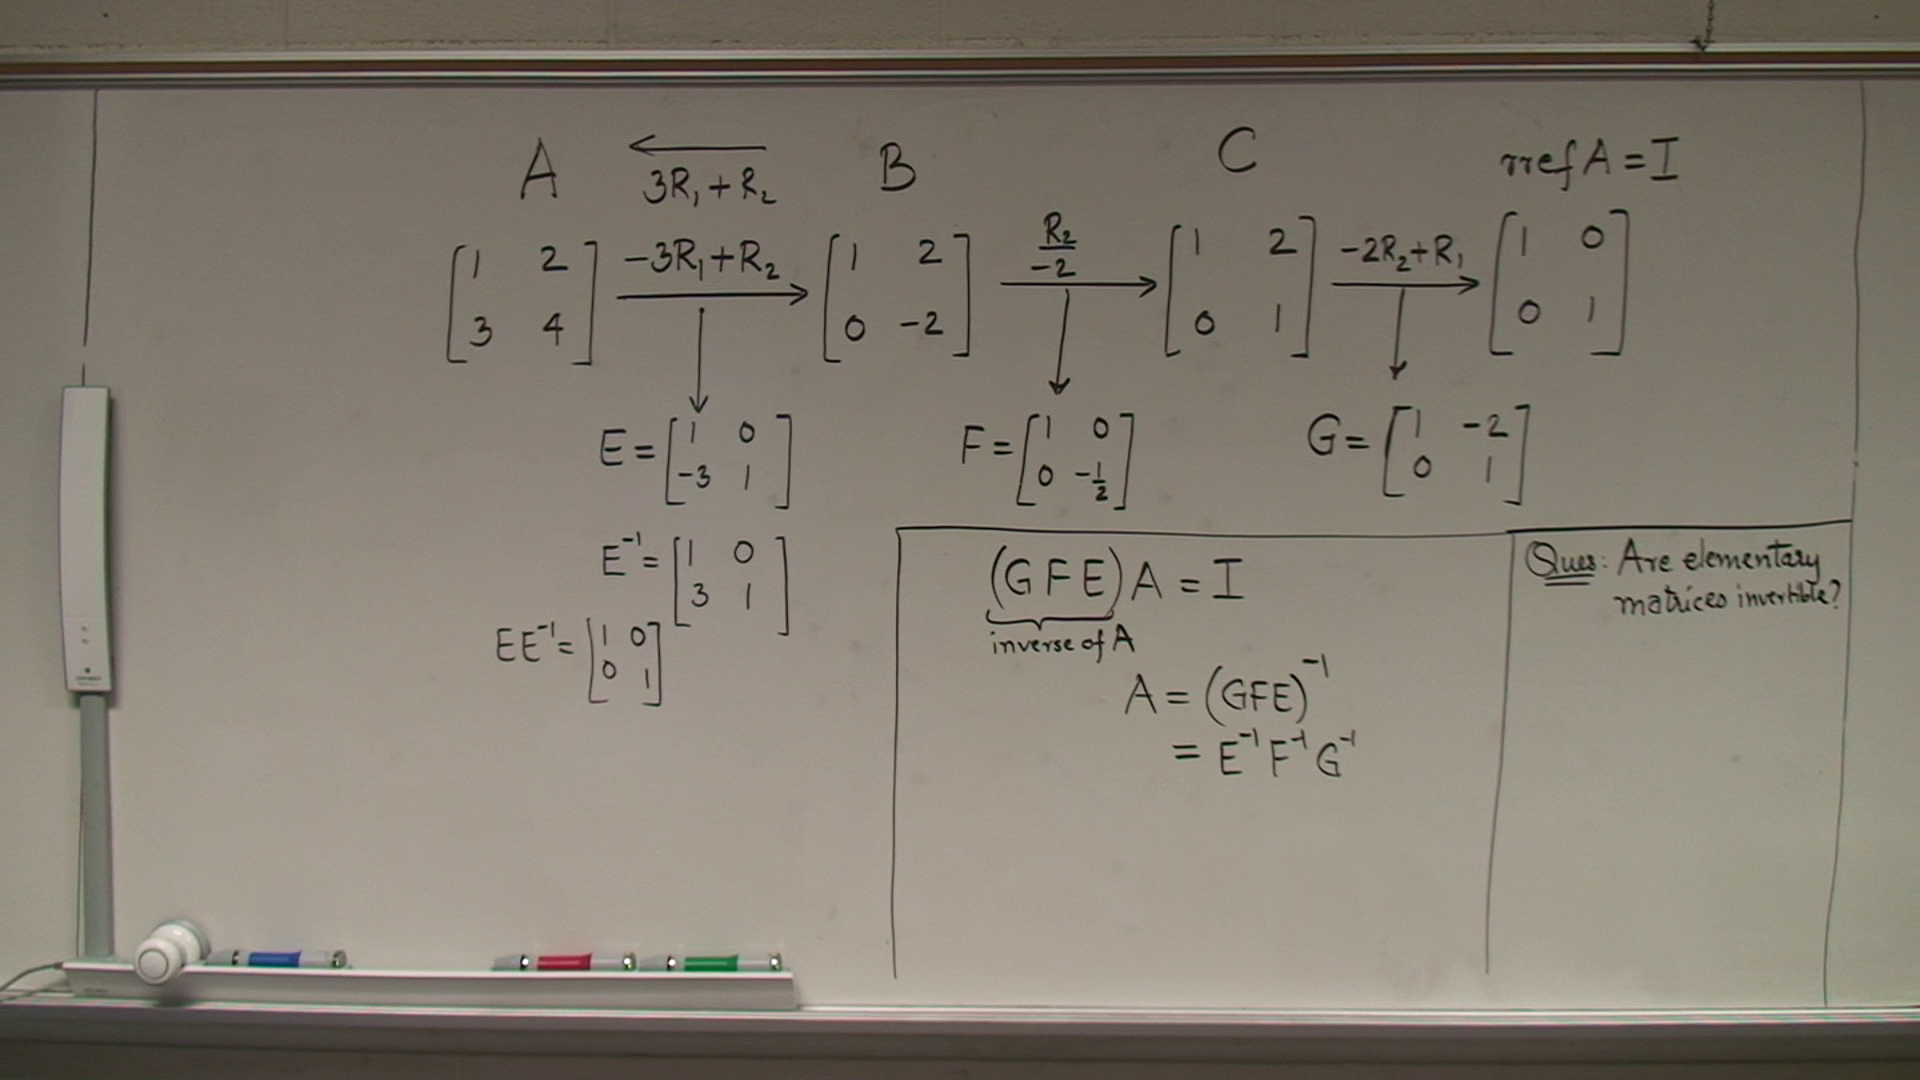 A
3R₁ + R₂
B
C
rref A = I
[1 2
3 4]
-3R₁ + R₂
[1 2
0 -2]
R₂
-2
[1 2
0 1]
-2R₂ + R₁
[1 0
0 1]
E = [1 0
-3 1]
F = [1 0
0 -1/2]
G = [1 -2
0 1]
E⁻¹ = [1 0
3 1]
EE⁻¹ = [1 0
0 1]
(GFE)A = I
inverse of A
A = (GFE)⁻¹
= E⁻¹ F⁻¹ G⁻¹
Ques: Are elementary
matrices invertible?